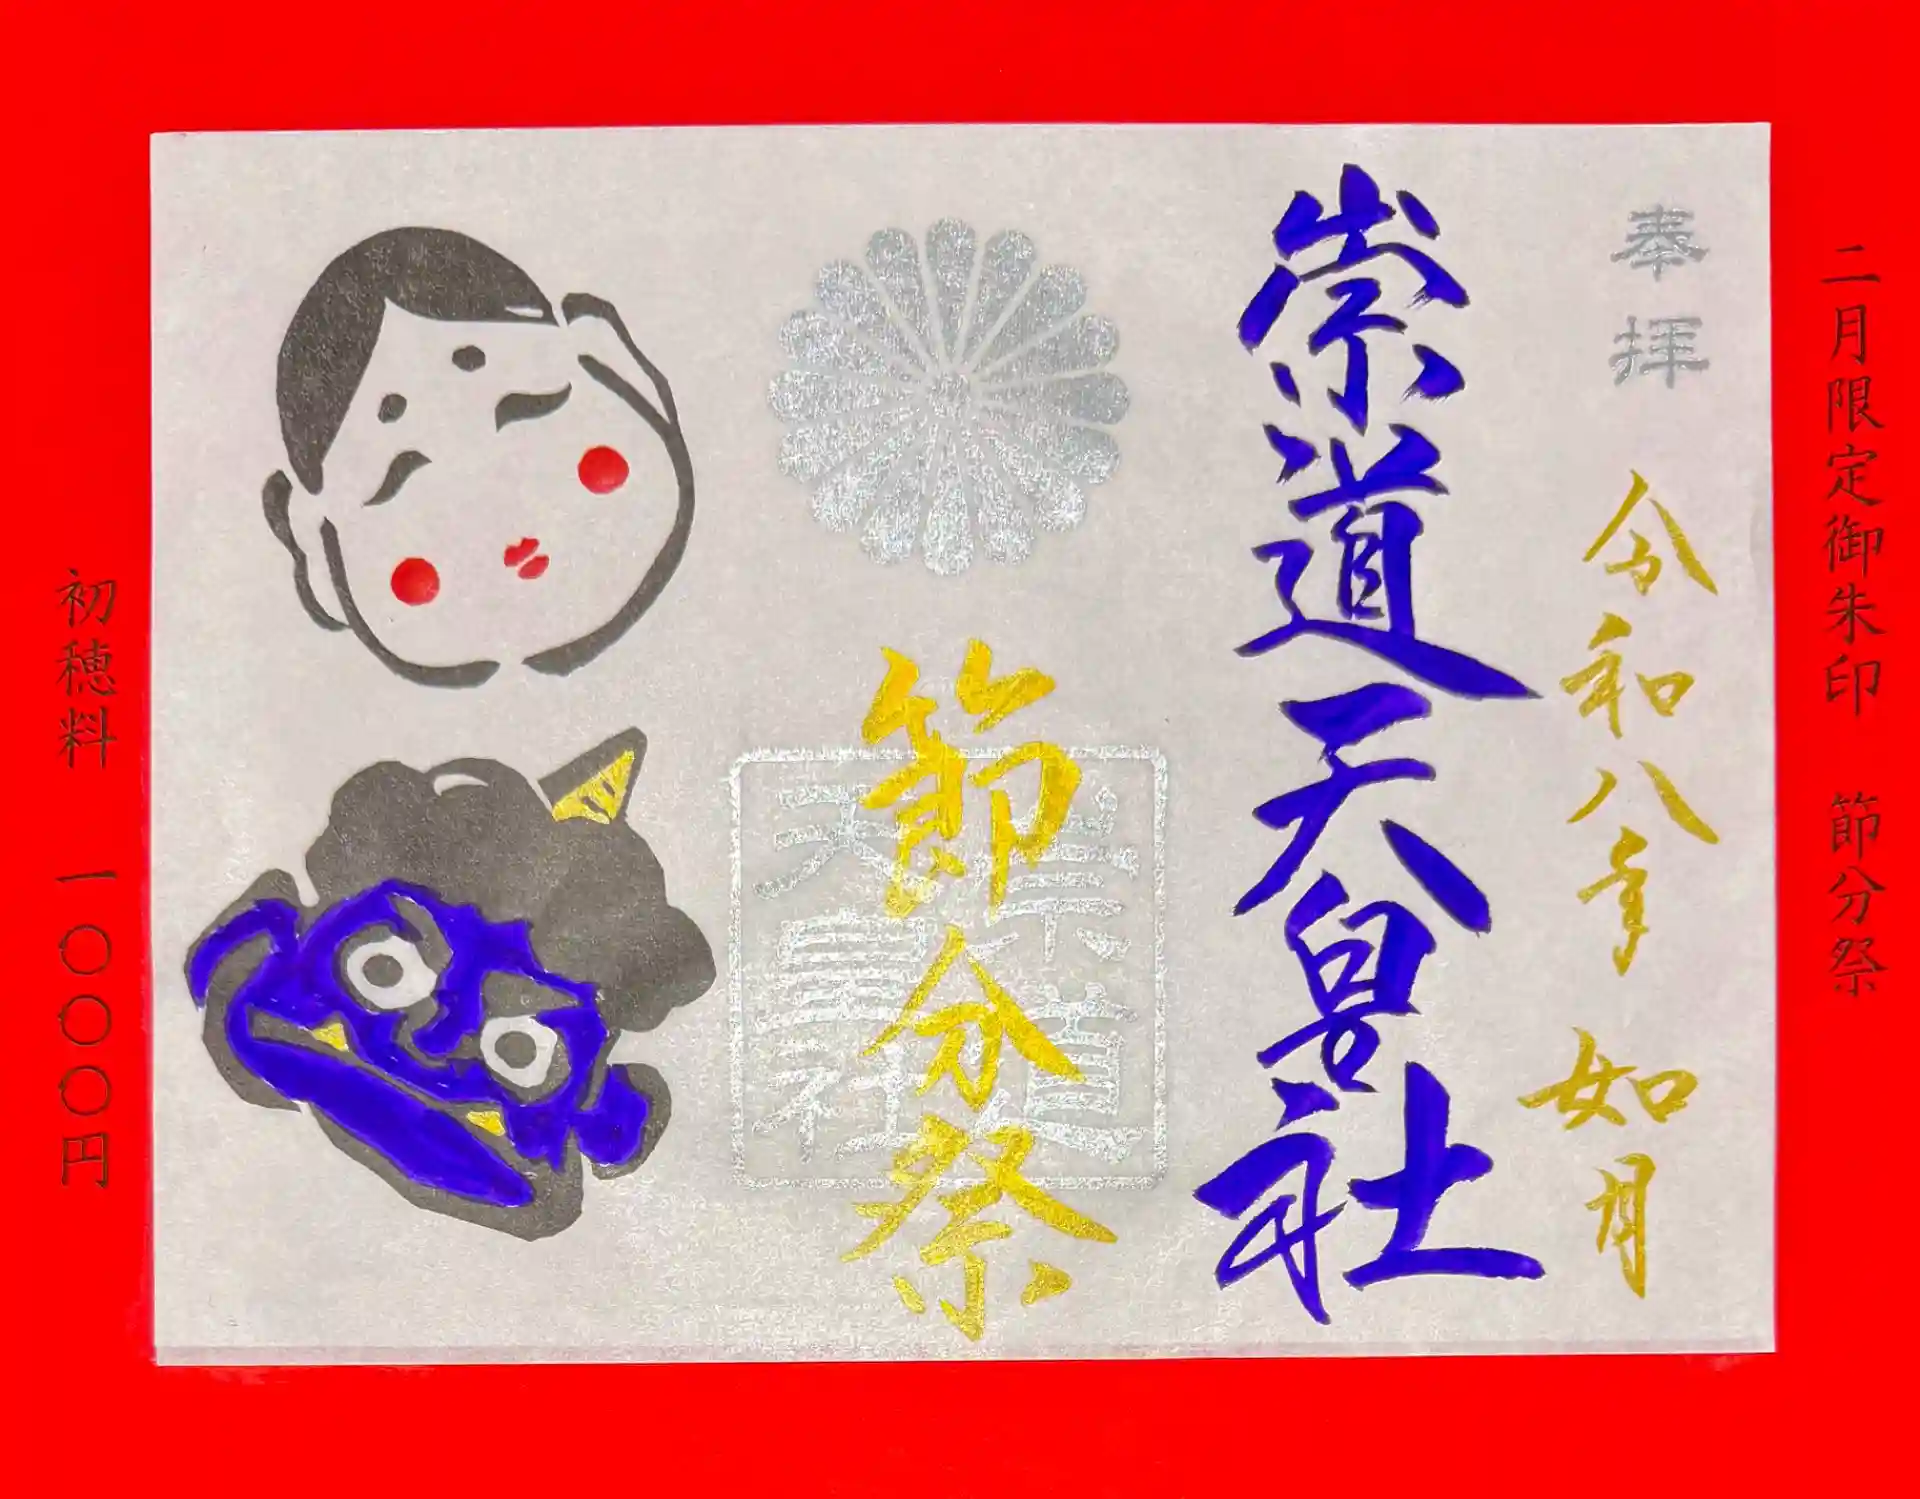 二月限定御朱印　節分祭
奉拝
令和八年　如月
崇道天皇社
節分祭
崇道
天皇社
初穂料　一〇〇〇円